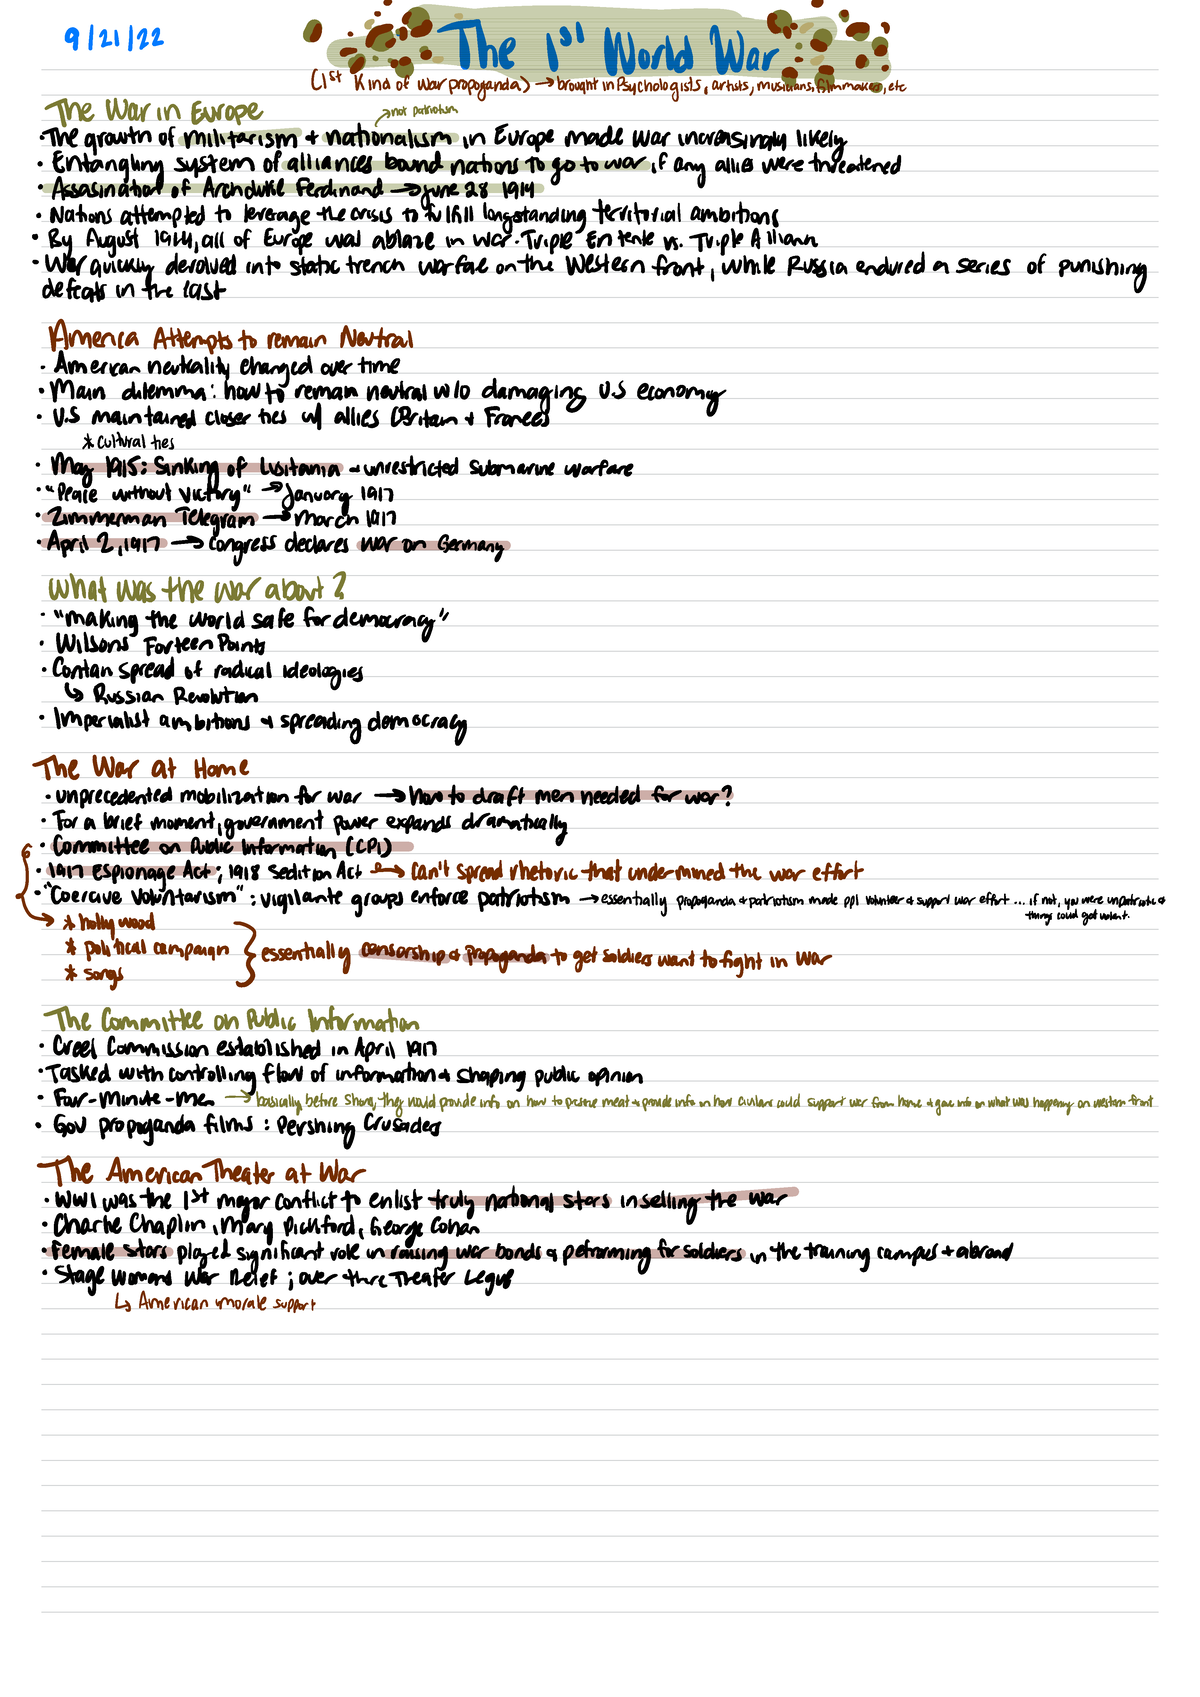 9/21/22
The 1st World War
(1st Kind of war propoganda) → brought in Psychologists, artists, musicians, filmmakers, etc
The War in Europe
→ not patriotism
• The growth of militarism + nationalism in Europe made war increasingly likely
• Entangling system of alliances bound nations to go to war, if any allies were threatened
• Assasination of Archduke Ferdinand → June 28 1914
• Nations attempted to leverage the crisis to fulfill longstanding territorial ambitions
• By August 1914, all of Europe was ablaze in war. Triple Entente vs. Triple Alliann
• War quickly devolved into static trench warfare on the Western front, while Russia endured a series of punishing
defeats in the East
America Attempts to remain Neutral
• American neutrality changed over time
• Main dilemma: how to remain neutral w/o damaging U.S economy
• U.S maintained closer ties w/ allies (Britain + France)
* cultural ties
• May 1915: Sinking of Lusitania + unrestricted submarine warfare
• "Peace without Victory" → January 1917
• Zimmerman Telegram → March 1917
• April 2, 1917 → Congress declares war on Germany
What was the war about?
• "making the world safe for democracy"
• Wilsons Forteen Points
• Contain spread of radical ideologies
↳ Russian Revolution
• Imperialist ambitions + spreading democracy
The War at Home
• unprecedented mobilization for war → how to draft men needed for war?
• For a brief moment, government power expands dramatically
• Committee on Public Information (CPI)
• 1917 Espionage Act; 1918 Sedition Act → can't spread rhetoric that undermined the war effort
• "Coercive Voluntarism": vigilante groups enforce patriotism → essentially propoganda + patriotism made ppl volunteer & support war effort ... if not, you were unpatriotic &
things could get violent.
* hollywood
* political campaign } essentially censorship & propoganda to get soldiers want to fight in war
* songs
The Committee on Public Information
• Creel Commission established in April 1917
• Tasked with controlling flow of information + shaping public opinion
• Four-Minute-Men → basically, before show, they would provide info on how to meat + provide info on how could support war from home + gave info on what was happening on western front
• Gov propoganda films: Pershing Crusaders
The American Theater at War
• WW1 was the 1st major conflict to enlist truly national stars in selling the war
• Charlie Chaplin, Mary Pickford, George Cohan
• Female stars played significant role in raising war bonds & petrorming for soldiers in the training campus + abroad
• Stage Womans War Relief; over there Theater Legue
↳ American morale support